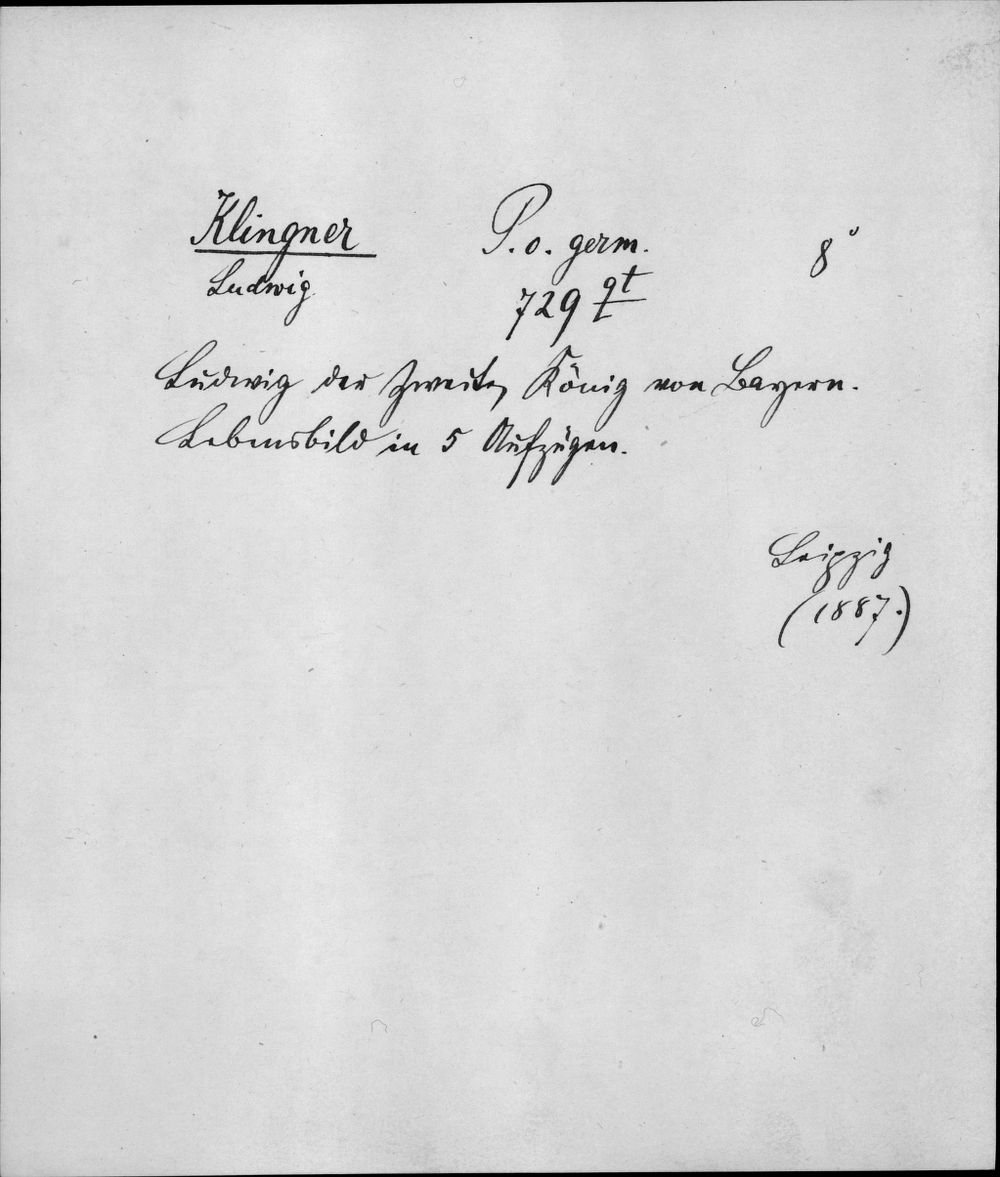 Klingner P. o. germ. 8°
Ludwig 729 qt
Ludwig der Zweite, König von Bayern.
Lebensbild in 5 Aufzügen.
Leipzig
(1887.)